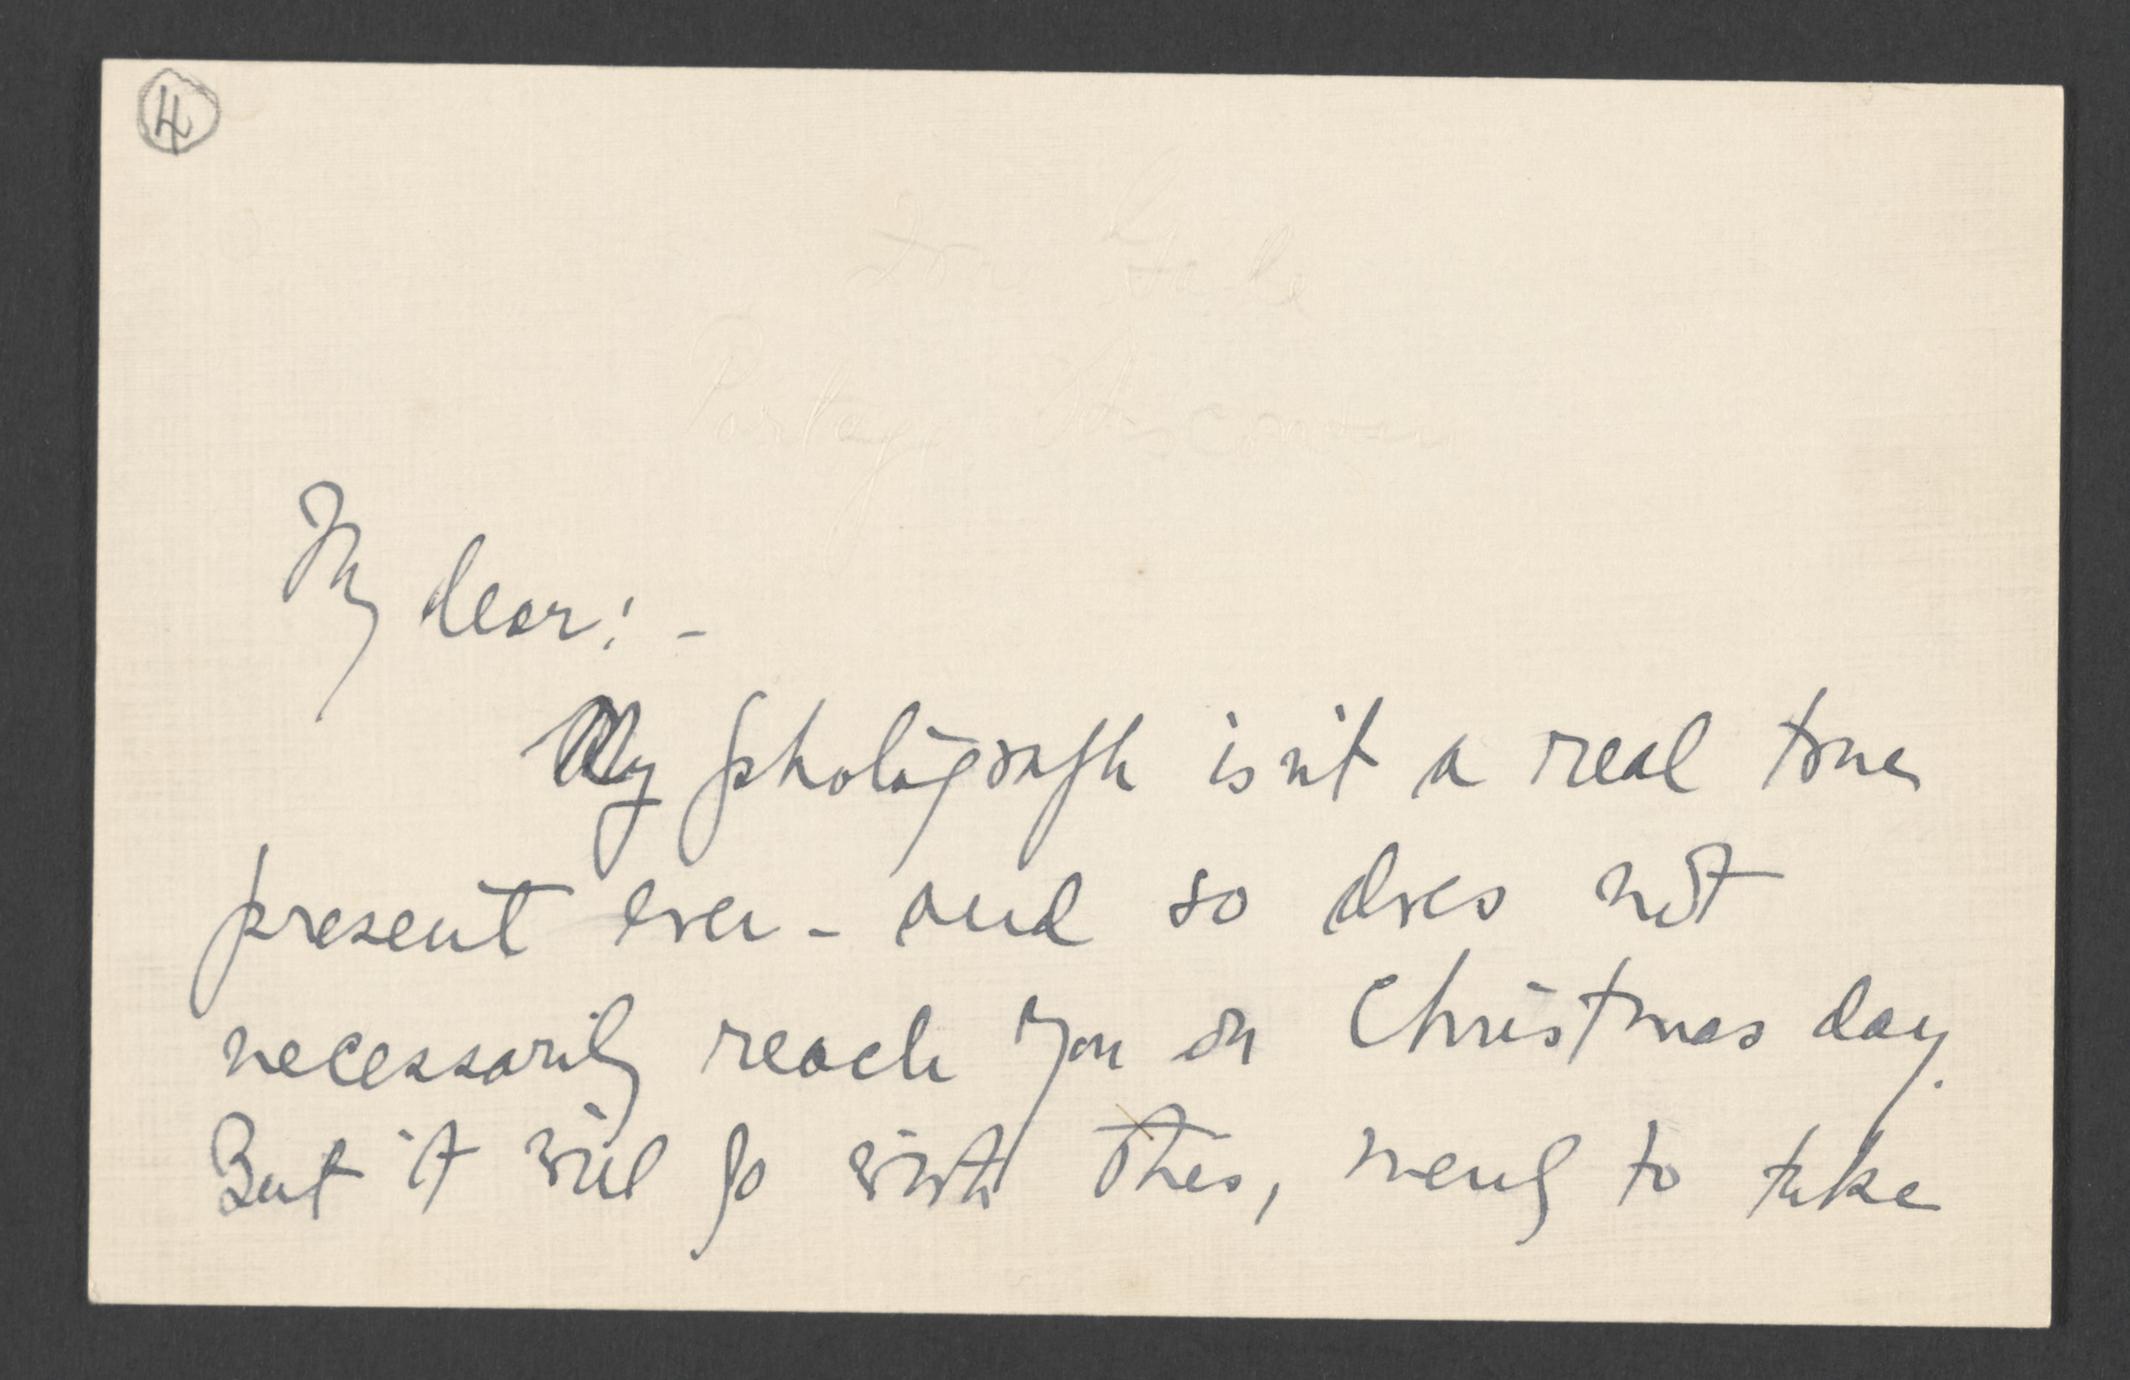 4
Zona Gale
Portage, Wisconsin
My dear: -
My photograph isn't a real
present ever - and so does not
necessarily reach you on Christmas day.
But it will go with this, merely to take